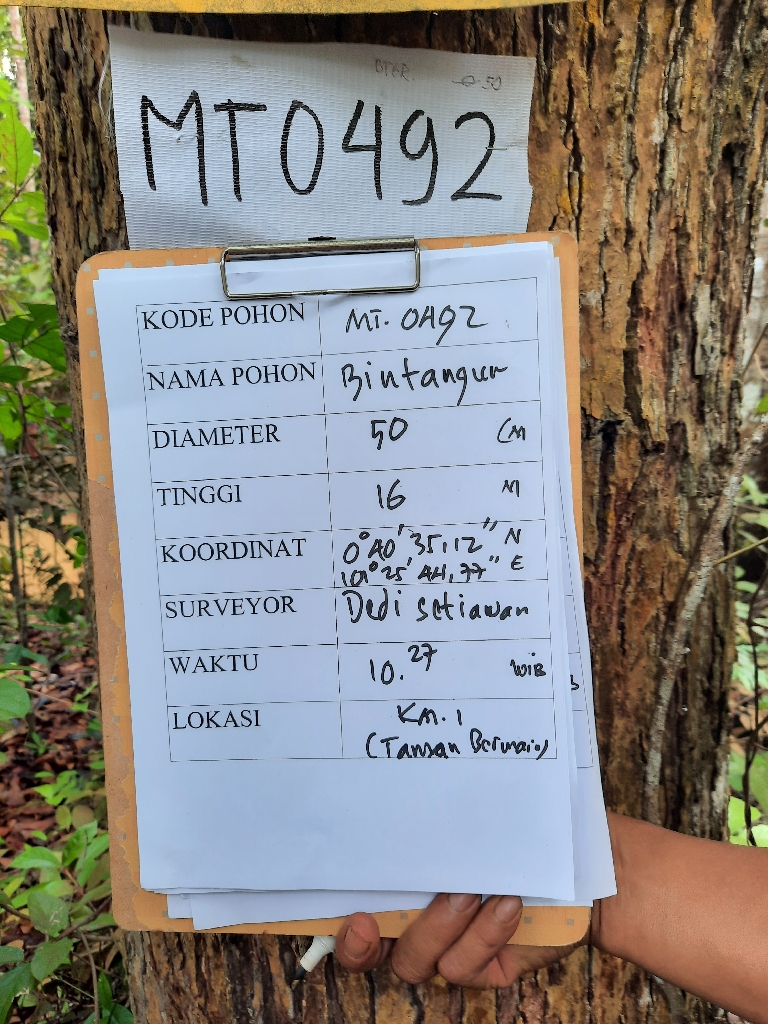 DTBR. ⌀ 50
MT0492
KODE POHON MT. 0492
NAMA POHON Bintangur
DIAMETER 50 CM
TINGGI 16 M
KOORDINAT 0° 40' 35,12" N
101° 25' 44,77" E
SURVEYOR Dedi setiawan
WAKTU 10.27 WIB
LOKASI KM. 1
(Taman Bermain)